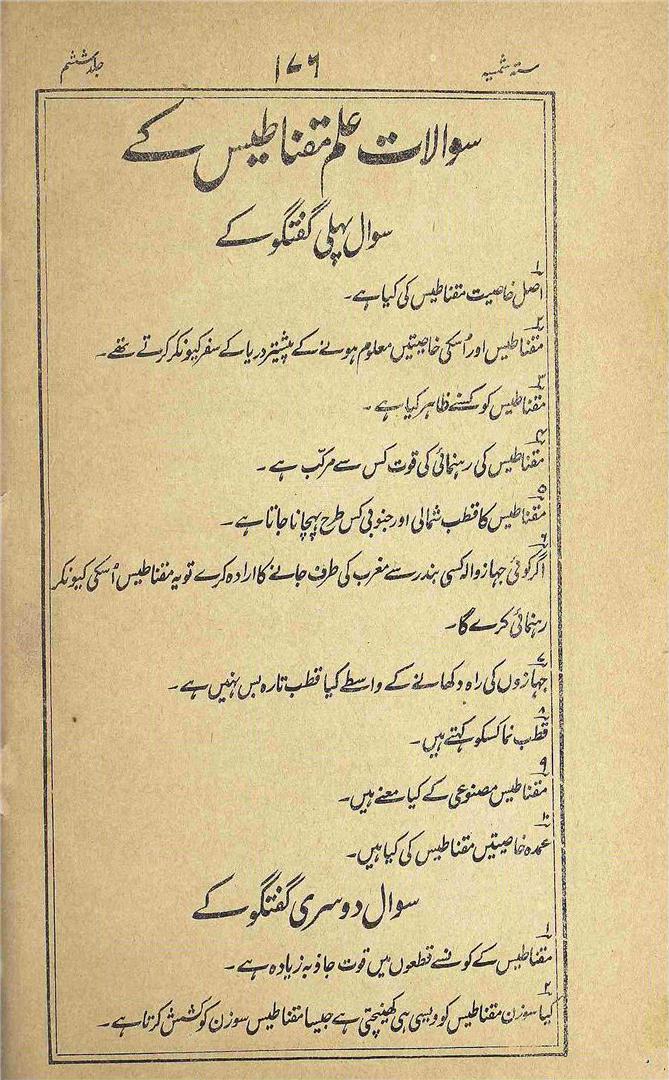 ستہ شمسیہ ۱۷۶ جلد ششم
سوالات علم مقناطیس کے
سوال پہلی گفتگو کے
۱
اصل خاصیت مقناطیس کی کیا ہے۔
۲
مقناطیس اور اُسکی خاصیتیں معلوم ہونے کے پیشتر دریا کے سفر کیونکر کرتے تھے۔
۳
مقناطیس کو کسنے ظاہر کیا ہے۔
۴
مقناطیس کی رہنمائی کی قوت کس سے مرکّب ہے۔
۵
مقناطیس کا قطب شمالی اور جنوبی کس طرح پہچانا جاتا ہے۔
۶
اگر کوئی جہاز والہ کسی بندر سے مغرب کی طرف جانے کا ارادہ کرے تو یہ مقناطیس اُسکی کیونکر
رہنمائی کرے گا۔
۷
جہازوں کی راہ دکھانے کے واسطے کیا قطب تارہ بس نہیں ہے۔
۸
قطب نما کسکو کہتے ہیں۔
۹
مقناطیس مصنوعی کے کیا معنے ہیں۔
۱۰
عمدہ خاصیتیں مقناطیس کی کیا ہیں۔
سوال دوسری گفتگو کے
۱
مقناطیس کے کونسے قطعوں میں قوت جاذبہ زیادہ ہے۔
۲
کیا سوزن مقناطیس کو ویسی ہی کھینچتی ہے جیسا مقناطیس سوزن کو کشش کرتا ہے۔